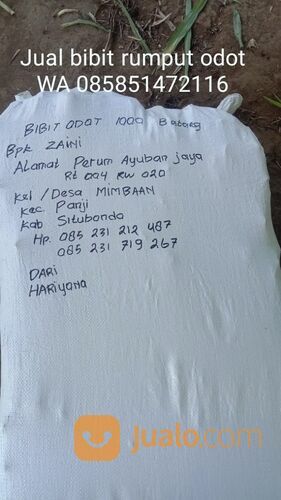 Jual bibit rumput odot
WA 085851472116
BIBIT ODOT 1000 Batang
Bpk ZAINI
ALamat Perum Ayuban jaya
Rt 004 RW 020
Kel / Desa MIMBAAN
Kec Panji
Kab Situbondo
Hp. 085 231 212 487
085 231 719 267
DARI
HARIYANA
Jualo.com